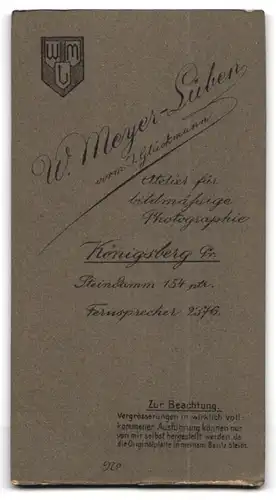 WML
W. Meyer-Lüben
vorm. J. Glückmann
Atelier für
bildmäßige
Photographie
Königsberg Pr.
Steindamm 154 ptr.
Fernsprecher 2576.
Zur Beachtung.
Vergrösserungen in wirklich voll-
kommener Ausführung können nur
von mir selbst hergestellt werden, da
die Originalplatte in meinem Besitz bleibt.